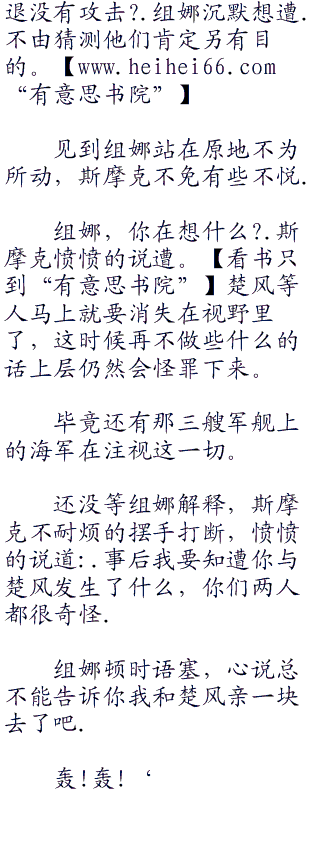 退没有攻击?.组娜沉默想遭.
不由猜测他们肯定另有目
的。【www.heihei66.com
“有意思书院”】
见到组娜站在原地不为
所动，斯摩克不免有些不悦.
组娜，你在想什么?.斯
摩克愤愤的说遭。【看书只
到“有意思书院”】楚风等
人马上就要消失在视野里
了，这时候再不做些什么的
话上层仍然会怪罪下来。
毕竟还有那三艘军舰上
的海军在注视这一切。
还没等组娜解释，斯摩
克不耐烦的摆手打断，愤愤
的说道:.事后我要知遭你与
楚风发生了什么，你们两人
都很奇怪.
组娜顿时语塞，心说总
不能告诉你我和楚风亲一块
去了吧.
轰!轰!‘